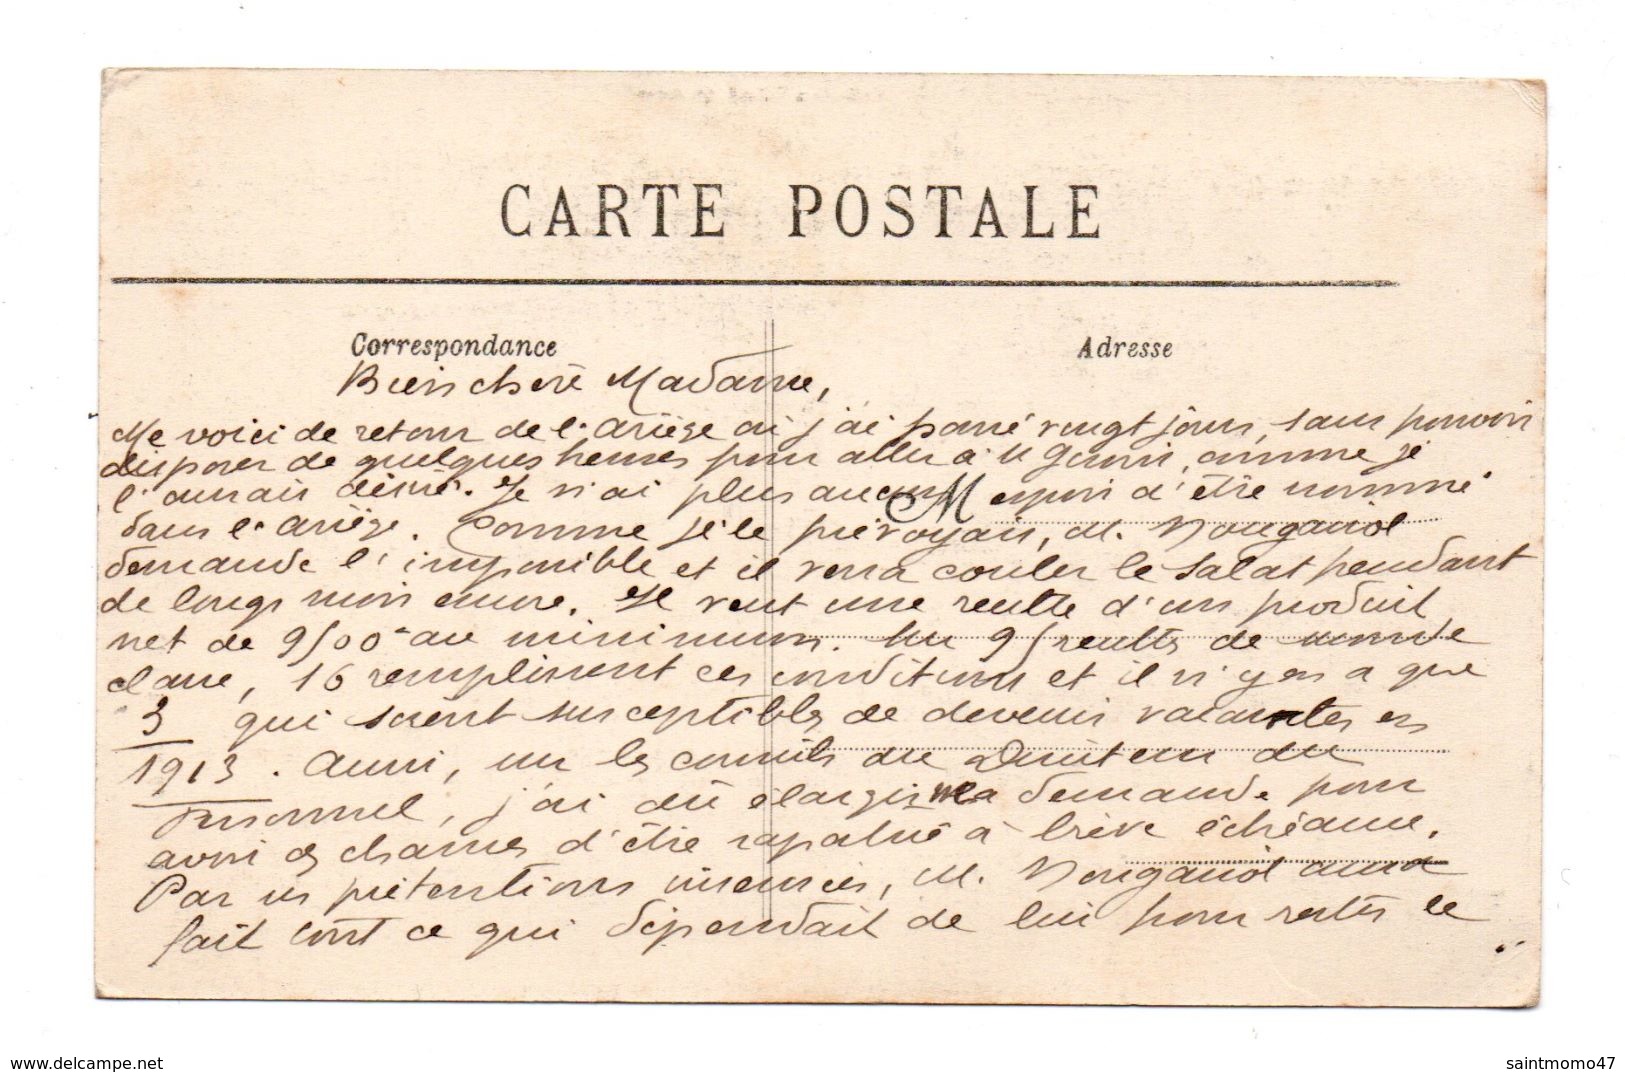 CARTE POSTALE
Correspondance
Adresse
Bien chère Madame,
Me voici de retour de l'Ariège où j'ai passé vingt jours, sans pouvoir
disposer de quelques heures pour aller à St Girons, comme je
l'aurais désiré. Je n'ai plus aucun espoir d'être nommé
M
dans l'Ariège. Comme je le prévoyais, M. Nougarol
demande l'impossible et il verra couler le Salat pendant
de longs mois encore. Il veut une recette d'un produit
net de 9500 au minimum. Sur 95 recettes de seconde
classe, 16 remplissent ces conditions et il n'y en a que
3 qui soient susceptibles de devenir vacantes en
1913. Aussi, sur les conseils du Directeur du
Personnel, j'ai dû élargir ma demande pour
avoir des chances d'être rapatrié à brève échéance.
Par ses prétentions insensées, M. Nougarol aura
fait tout ce qui dépendait de lui pour rester le
www.delcampe.net
saintmomo47